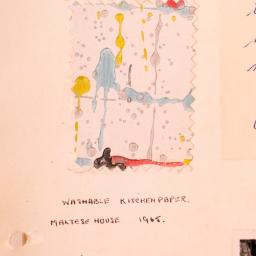 WASHABLE KITCHEN PAPER.
MALTESE HOUSE 1965.